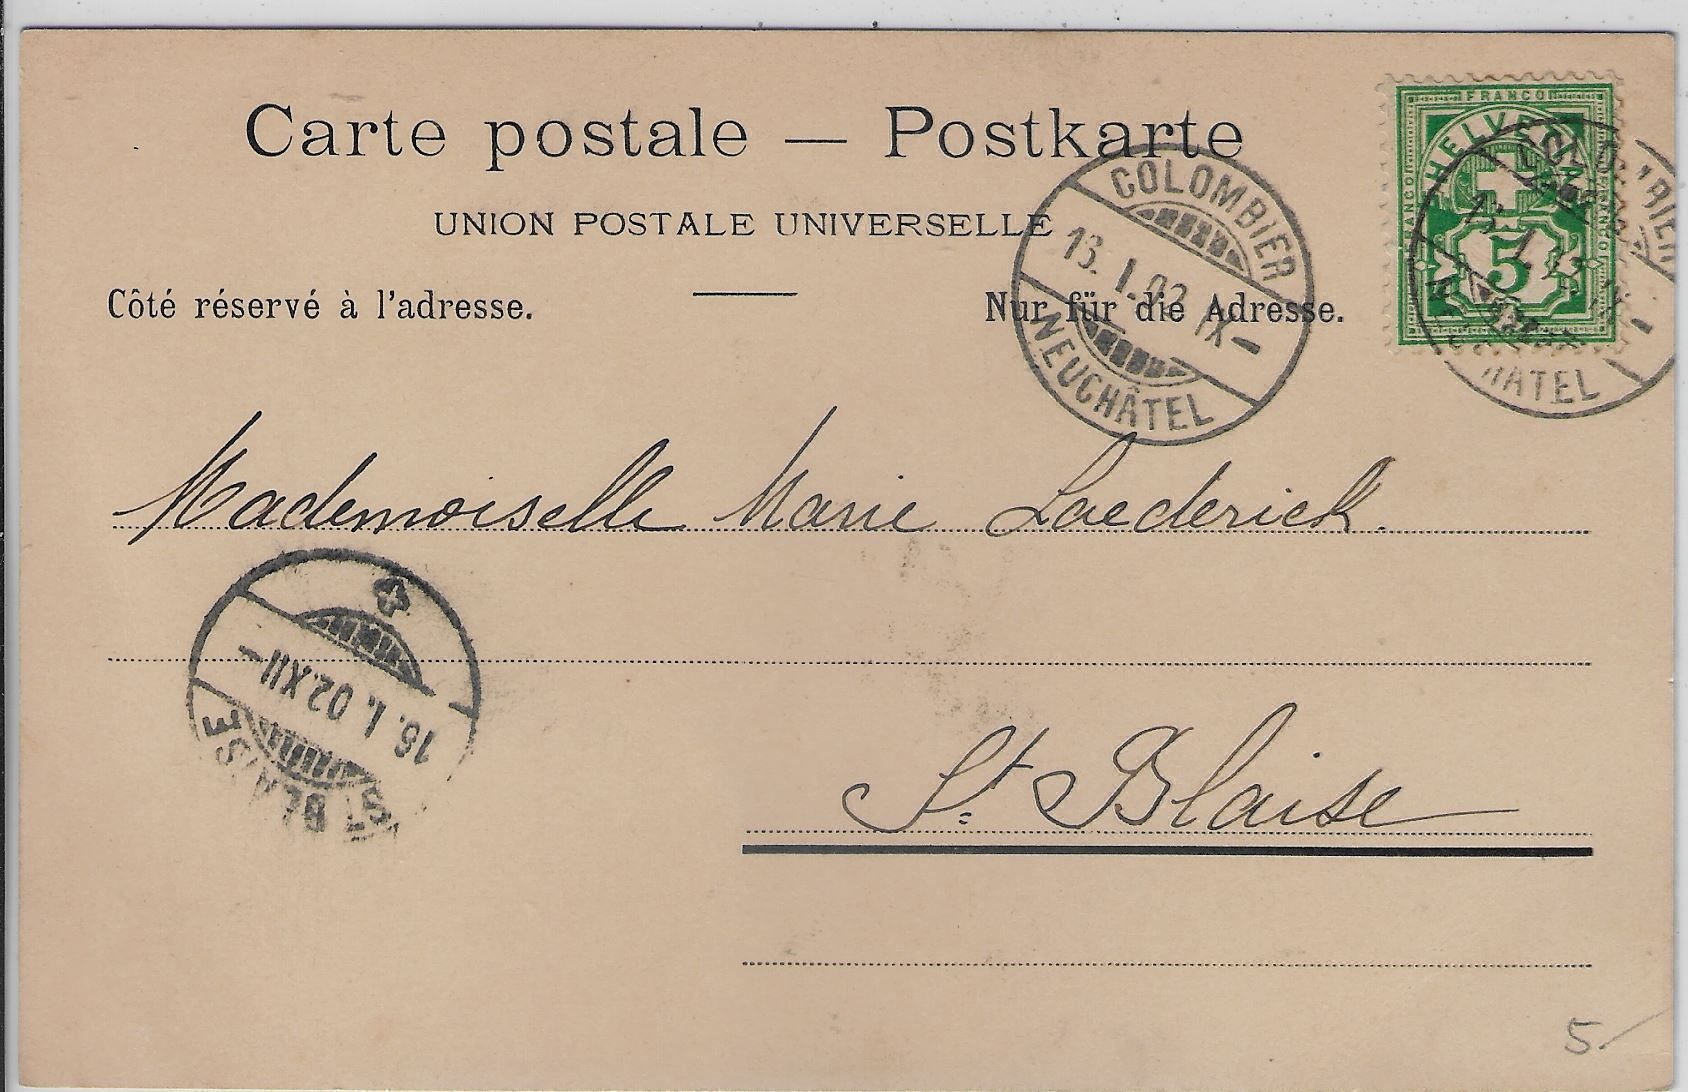 Carte postale — Postkarte
UNION POSTALE UNIVERSELLE
Côté réservé à l'adresse.
Nur für die Adresse.
FRANCO
HELVETIA
FRANCO
FRANCO
5
COLOMBIER
16. I. 02 IX –
NEUCHÂTEL
HATEL
Mademoiselle Marie Laederich.
16. I. 02.XII –
ST BLAISE
St. Blaise
5.